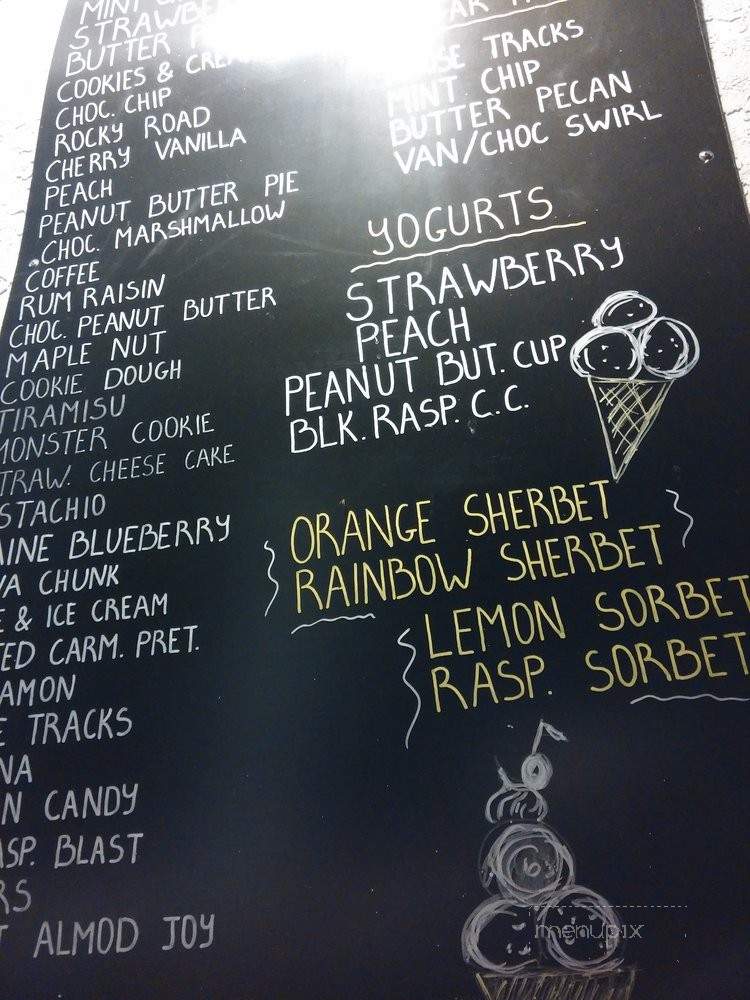 MINT
STRAWBE
BUTTER P
COOKIES & CREA
CHOC. CHIP
ROCKY ROAD
CHERRY VANILLA
PEACH
PEANUT BUTTER PIE
CHOC. MARSHMALLOW
COFFEE
RUM RAISIN
CHOC. PEANUT BUTTER
MAPLE NUT
COOKIE DOUGH
TIRAMISU
MONSTER COOKIE
TRAW. CHEESE CAKE
STACHIO
AINE BLUEBERRY
VA CHUNK
E & ICE CREAM
TED CARM. PRET.
AMON
E TRACKS
NA
N CANDY
ASP. BLAST
RS
T ALMOD JOY
SE TRACKS
MINT CHIP
BUTTER PECAN
VAN/CHOC SWIRL
YOGURTS
STRAWBERRY
PEACH
PEANUT BUT. CUP
BLK. RASP. C.C.
ORANGE SHERBET
RAINBOW SHERBET
LEMON SORBET
RASP. SORBET
menupix